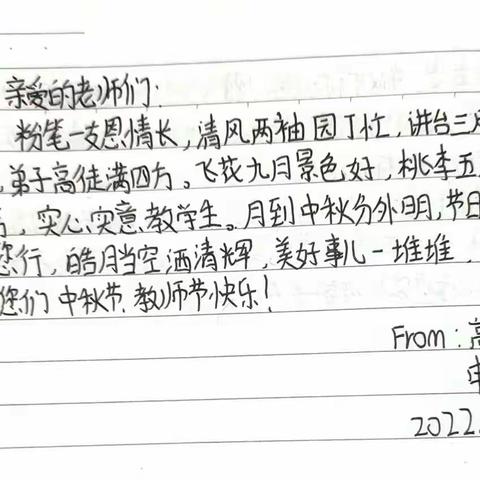 亲爱的老师们:
粉笔一支恩情长,清风两袖园丁忙,讲台三尺
,弟子高徒满四方。飞花九月景色好,桃李五
,实心实意教学生。月到中秋分外明,节日
您行,皓月当空洒清辉,美好事儿一堆堆,
您们中秋节、教师节快乐!
From:高
2022.